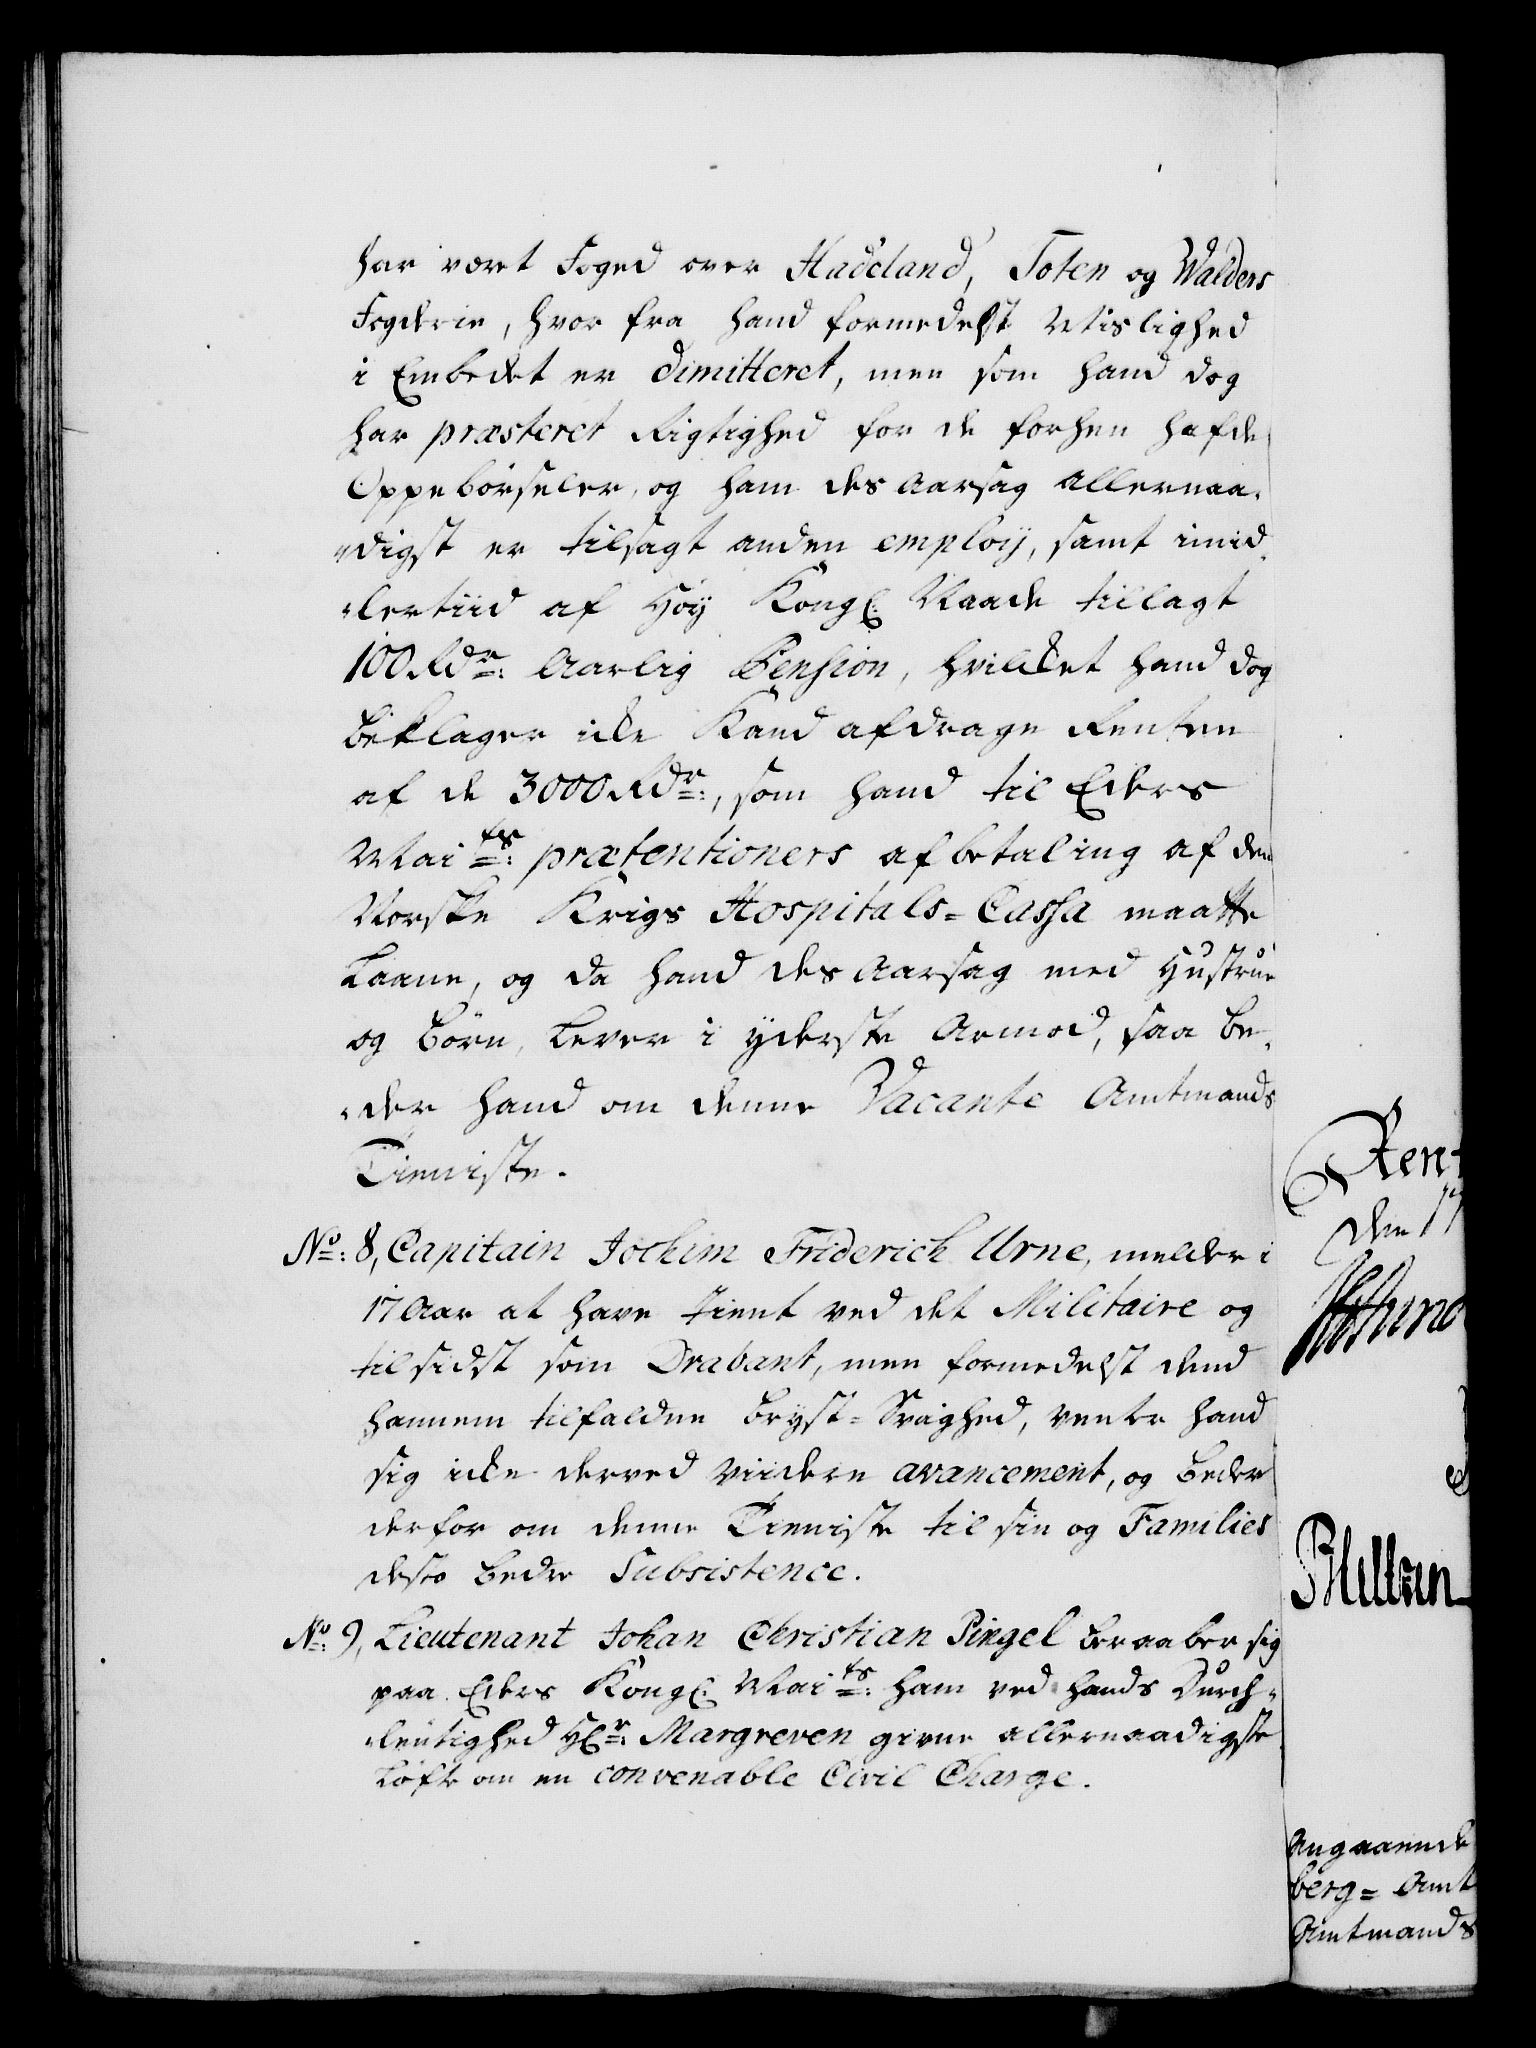 har været Foged over Hadeland, Toten og Walders
Fogderie, hvor fra hand formedelst Mislighed
i Embedet er dimitteret, men som hand dog
har præsteret Rigtighed for de forhen hafde
Oppebörseler, og ham des Aarsag Allernaa-
digst er tilsagt anden employ, samt imid-
lertiid af Höy Kongl: Naade tillagt
100 Rdr: Aarlig Pension, hvilcket hand dog
beklager icke Kand afdrage Renten
af de 3000 Rdr:, som hand til Eders
Maits: prætentioners afbetaling af den
Norske Krigs Hospitals-Cassa maatte
Laane, og da hand des Aarsag med Hustrue
og Börn, Lever i yderste Armod, saa be-
der hand om denne Vacante Amtmands
Tieniste.
No: 8, Capitain Jochim Friderich Urne, melder i
17 Aar at have tient ved det Militaire og
til sidst som Drabant, men formedelst dend
hannem tilfaldne Bryst-Svaghed, venter hand
sig icke derved viidere avancement, og beder
derfor om denne Tieniste til sin og Families
desto bedre Subsistence.
No: 9, Lieutenant Johan Christian Pingel beraaber sig
paa Eders Kongl: Maits: ham ved hands Durch-
leutighed Hr: Margreven givne allernaadigste
Löfte om en convenable Civil Charge.
Rent
den 17
Angaaende
berg= Amt
Amtmands